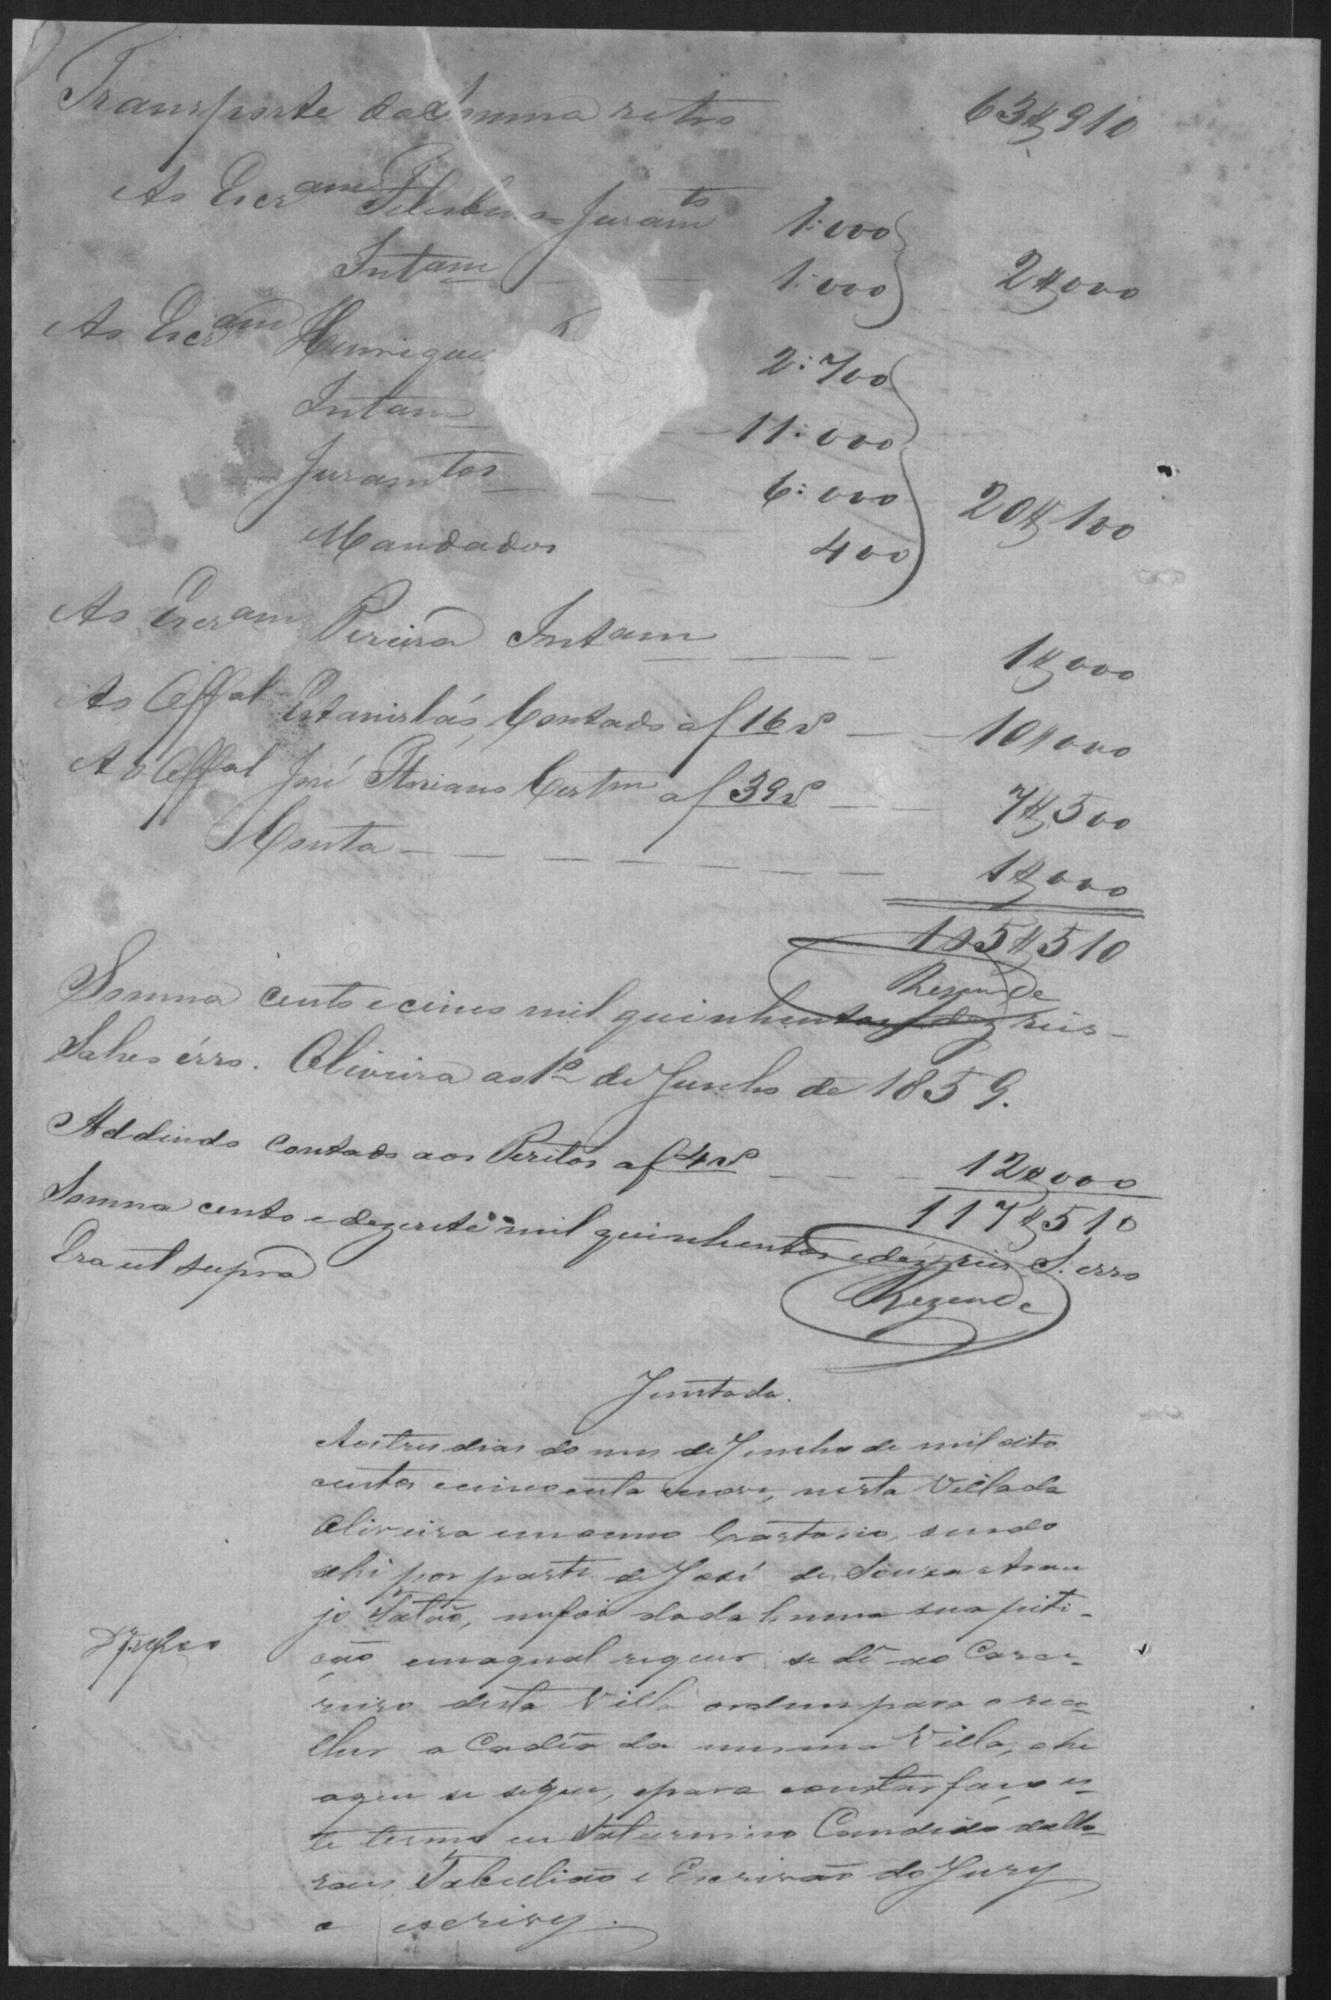 Transporte da somma retro 63$910
Ao Escram Juramto 1:000
Intam 1:000 2$000
Ao Escram Henrique 2:700
Intam 11:000
Juramtos 6:000 20$100
Mandados 400
Ao Escram Pereira Intam 1$000
Ao Offal Estanislás, Contado af 16v 10$000
Ao Offal José Floriano Certm af 39v 7$500
Conta 1$000
105$510
Rezende
Somma cento e cinco mil quinhentos e dez reis
Salvo érro. Oliveira ao 1º de Junho de 1859.
Addindo contado aos Peritos af 4v 12$000
117$510
Somma cento e dezesete mil quinhentos e déz reis S. erro
Era ut supra
Rezende
Juntada.
Aos tres dias do mes de Junho de mil oito
centos e cincoenta e nove, nesta Villa da
Oliveira em o meu Cartorio, sendo
ahi por parte de José de Souza Arau
jo, me foi dada huma sua peti-
ção em a qual requer se dê ao Carce-
reiro desta Villa ordem para o reco-
lher a Cadêa da mesma Villa, e he
a que se segue, e para constar faço es-
te termo eu Saturnino Candido da Mo-
raes Tabelião e Escrivão do Jury
o escrivy.